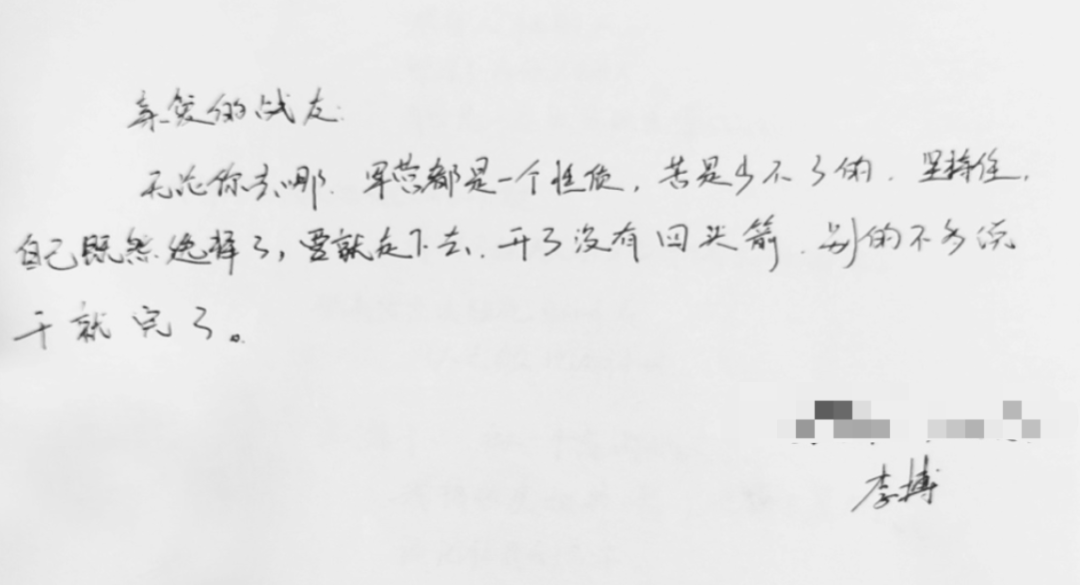 亲爱的战友:
无论你去哪.军营都是一个性质,苦是少不了的.坚持住,
自己既然选择了,要就走下去.开了没有回头箭.别的不多说
干就完了。
李搏